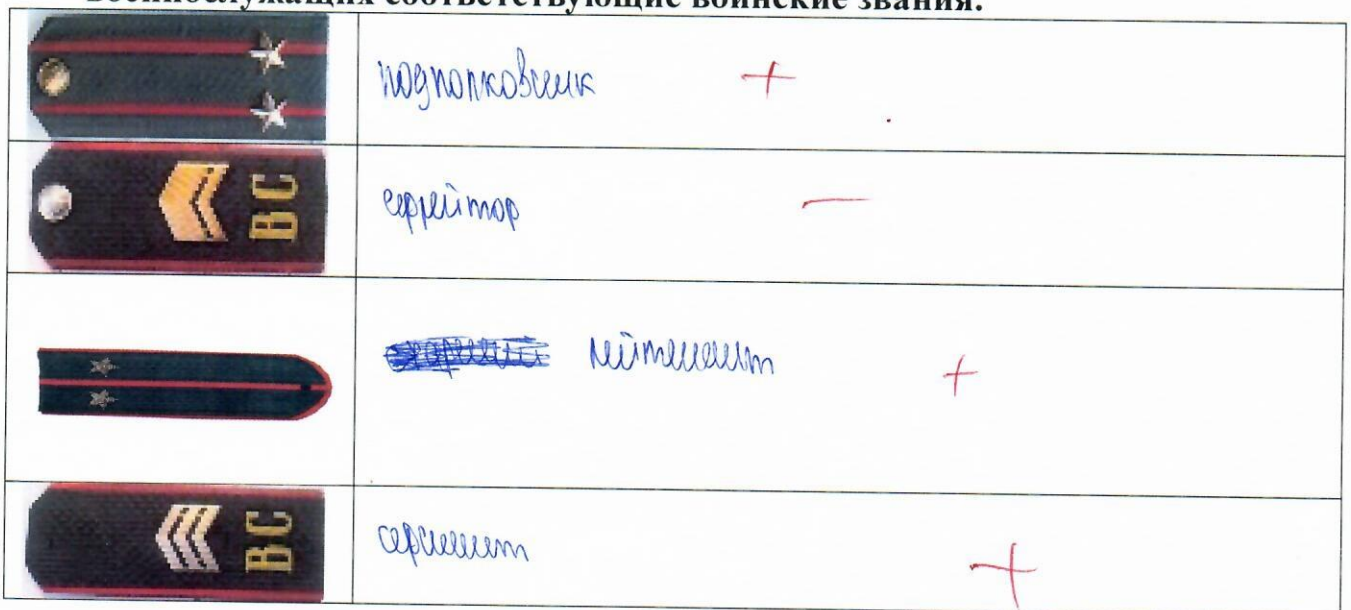 военнослужащих соответствующие воинские звания.
подполковник +
ВС
ефрейтор −
лейтенант +
ВС
сержант +